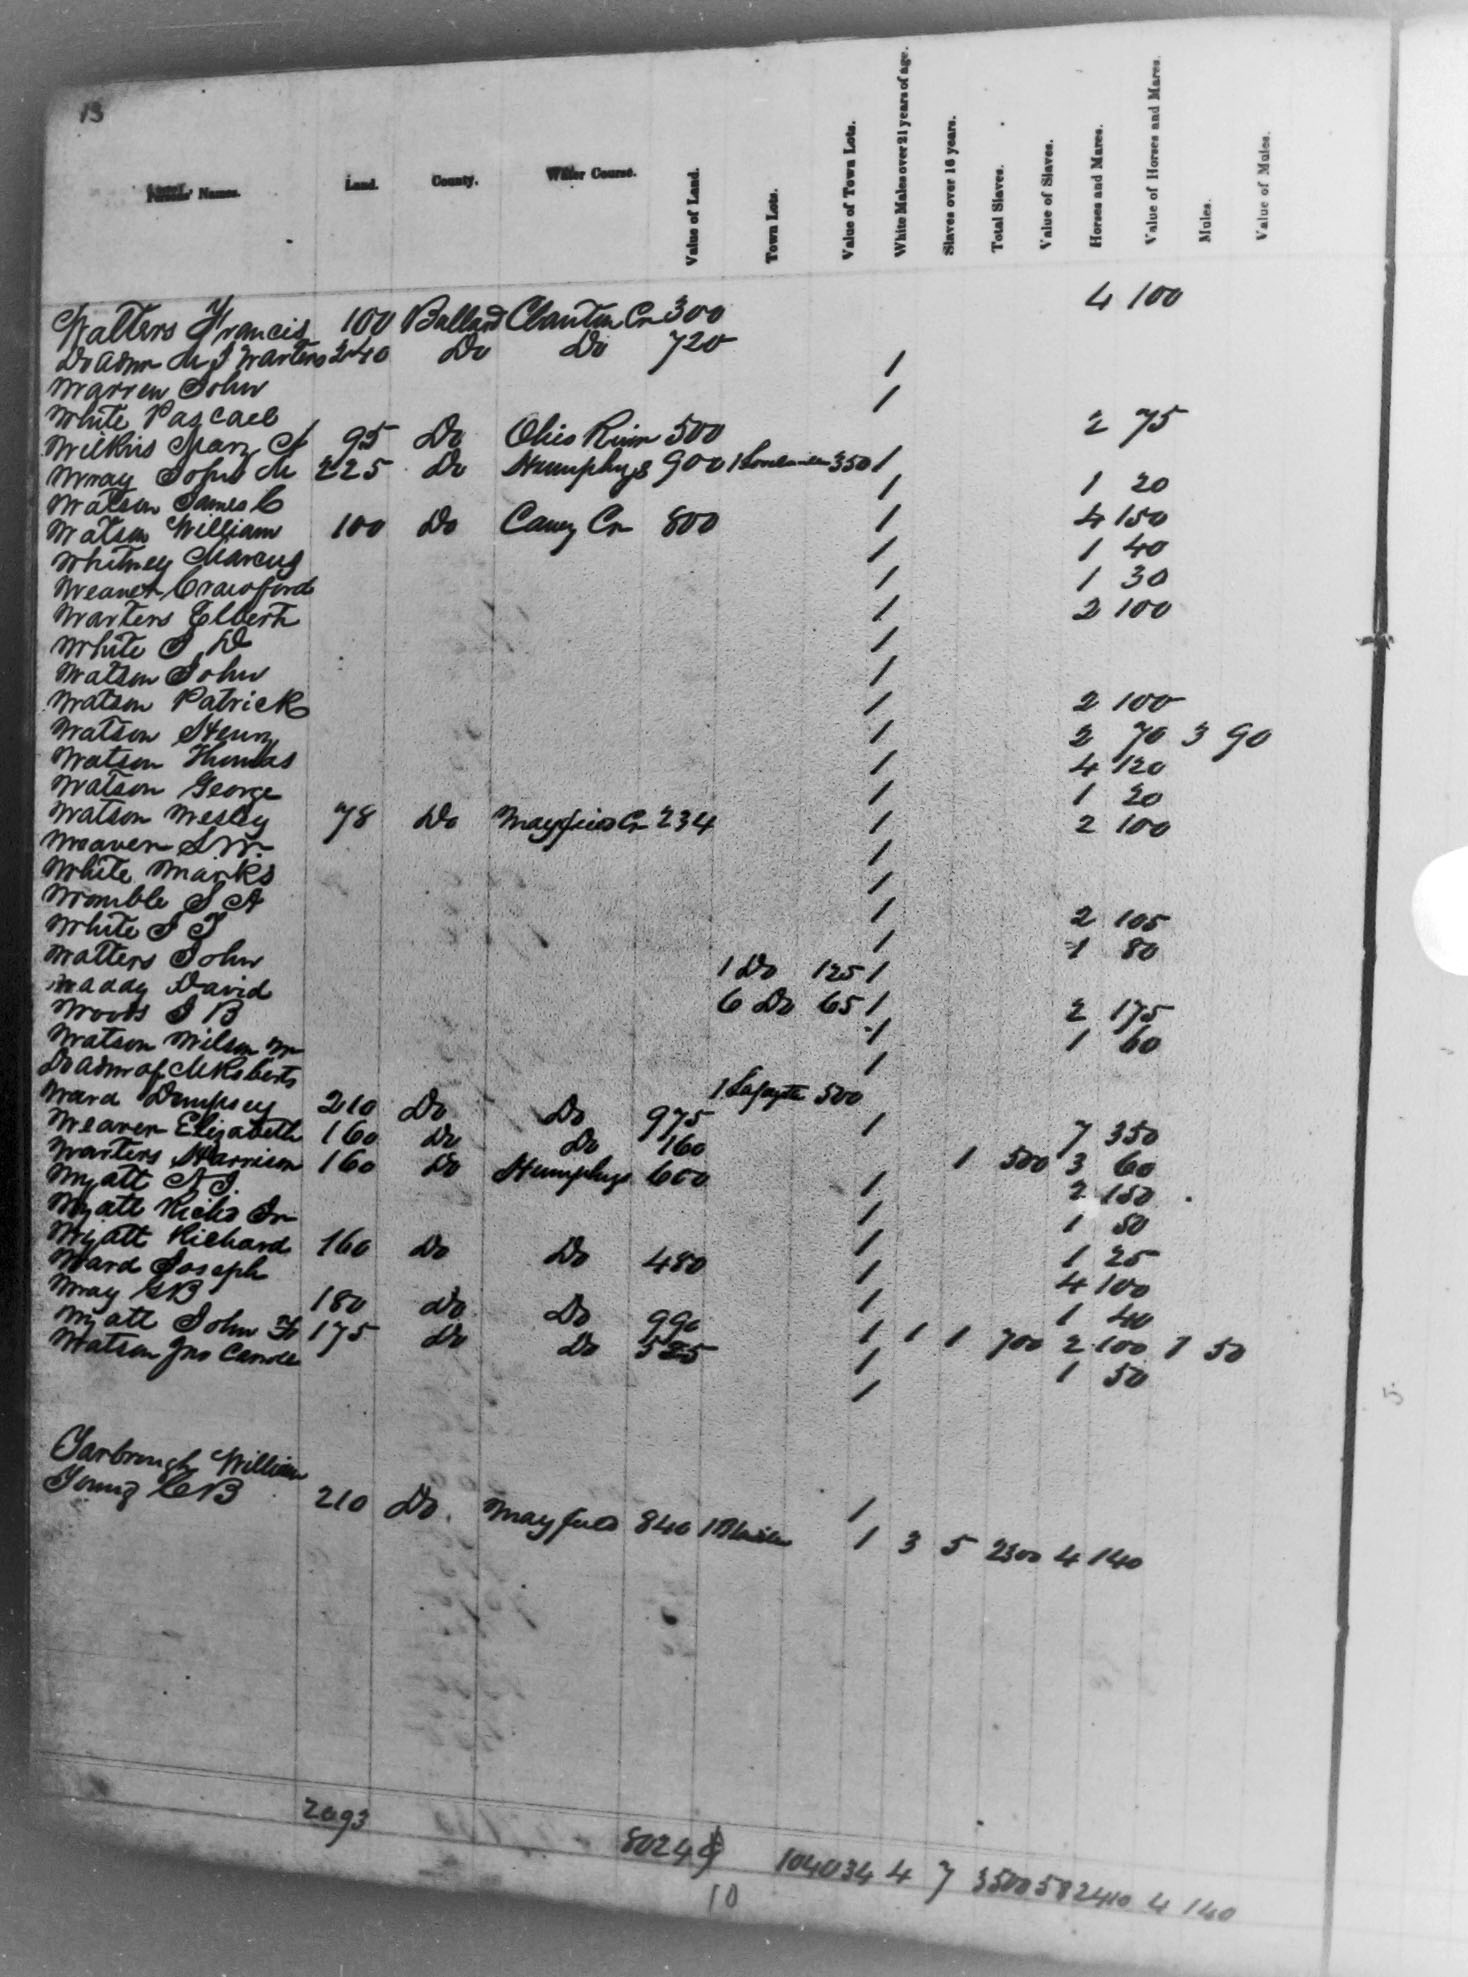 13
Persons' Names. Land. County. Water Course. Value of Land. Town Lots. Value of Town Lots. White Males over 21 years of age. Slaves over 16 years. Total Slaves. Value of Slaves. Horses and Mares. Value of Horses and Mares. Mules. Value of Mules.
Walters Francis 100 Ballard Clanton Cr 300 4 100
Do admr M J Warters 240 Do Do 720
Warren John 1
White Pascael 1
Wilkins Mary A 95 Do Ohio River 500 2 75
Wray John M 225 Do Humphys 900 1 350 1
Watson James C 1 1 20
Watson William 100 Do Caney Cr 800 1 4 150
Whitney Marcus 1 1 40
Weaver Crawford 1 1 30
Warters Elberth 1 2 100
White J D 1
Watson John 1
Watson Patrick 1 2 100
Watson Henry 1 2 70 3 90
Watson Thomas 1 4 120
Watson George 1 1 20
Watson Wesley 78 Do Mayfield Cr 234 1 2 100
Weaver S W. 1
White Marks 1
Womble S A 1 2 105
White J T 1 1 80
Walters John 1 Do 125 1
Waday David 6 Do 65 1 2 175
Woods J B 1 1 60
Watson Wilson W 1
Do admr of M Roberts 1 Lafayette 500
Ward Dempsey 210 Do Do 975 1 7 350
Weaver Elizabeth 160 Do Do 160 1 500 3 60
Warters Harrison 160 Do Humphys 600 1 2 150
Wyatt N J 1 1 50
Wyatt Richd Sr 1 1 25
Wyatt Richard 160 Do Do 480 1 4 100
Ward Joseph 1 1 40
Wray G B 180 Do Do 990 1 1 1 700 2 100 1 50
Wyatt John F 175 Do Do 525 1 1 50
Watson Jno 1
Yarbrough William 1
Young C B 210 Do. Mayfield 840 1 1 3 5 2300 4 140
2093 8024 9 1040 34 4 7 3500 58 2410 4 140
10